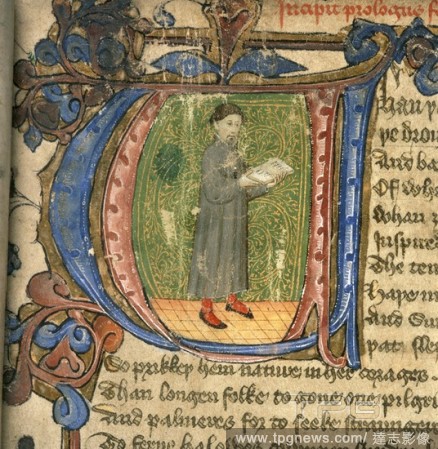 Incipit prologus f
han þ
þe drou
And ba
Of whi
Whan
Inspire
The ten
Haþe in
And
þat slee
So prikkeþ hem nature in her corages
Than longen folke to gone one pilgri
And palmeres for to seeke straunger
To ferne halo
www.tpgnews.com/ 達志影像